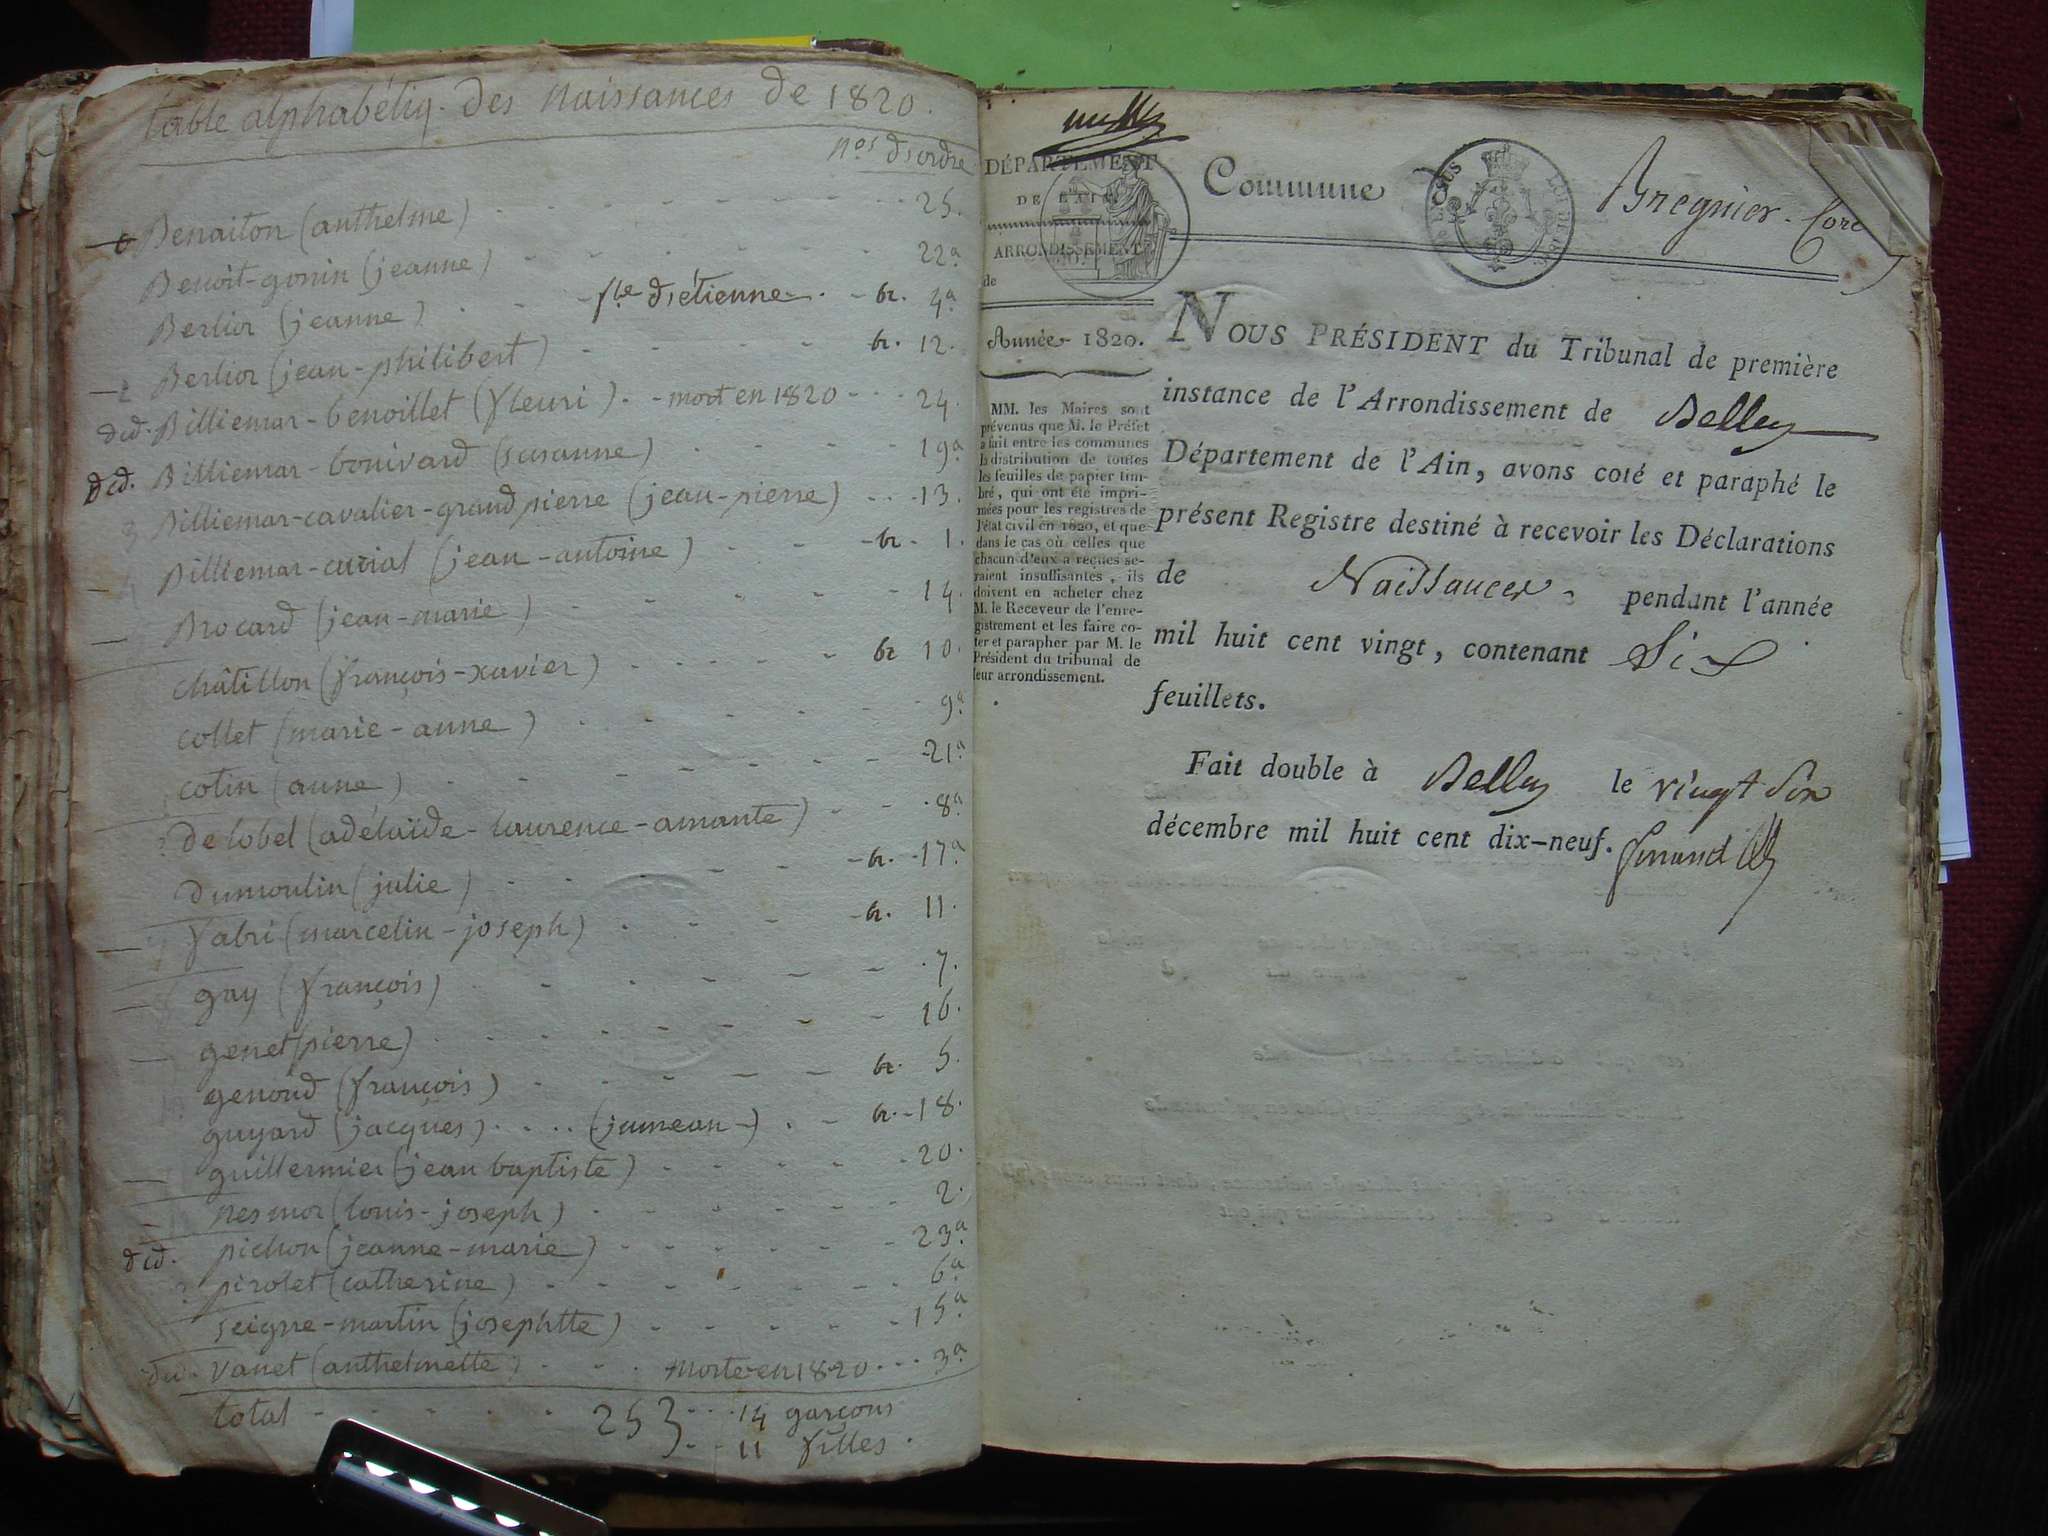 table alphabétiq. des naissances de 1820.
nos d'ordre
Benaiton (anthelme) 25.
Benoit-gonin (jeanne) 22a
Berlior (jeanne) d'étienne br. 4a
Berlior (jean-philibert) br. 12.
dcd. Billiemar-benoillet (fleuri) . - mort en 1820 - 24.
dcd. Billiemar-bouivard (susanne) 19a
3 Billiemar-cavalier-grandpierre (jean-pierre) 13.
Billiemar-curial (jean-antoine) br 1.
Brocard (jean-marie) 14.
châtillon (françois-xavier) br 10.
collet (marie-anne) 9a
cotin (anne) 21a
delobel (adélaïde-laurence-amante) 8a
dumoulin (julie) br. 17a
fabri (marcelin-joseph) br. 11.
gay (françois) 7.
genet (pierre) 16.
genoud (françois) br. 5.
guyard (jacques) . . . . (jumeau) br. 18.
guillermier (jean baptiste) 20.
nesmoz (louis-joseph) 2.
dcd. pichon (jeanne-marie) 23a
pirolet (catherine) 6a
seigne-martin (josephtte) 15a
dcd. vanet (anthelmette) morte en 1820 3a
total 25 } 14 garçons
11 filles.
DÉPARTEMENT
DE L'AIN
ARRONDISSEMENT
de
Commune Bregnier-Cordon
Année 1820.
MM. les Maires sont
prévenus que M. le Préfet
a fait entre les communes
la distribution de toutes
les feuilles de papier tim-
bré, qui ont été impri-
mées pour les registres de
l'état civil en 1820, et que
dans le cas où celles que
chacun d'eux a reçues se-
raient insuffisantes, ils
doivent en acheter chez
M. le Receveur de l'enre-
gistrement et les faire co-
ter et parapher par M. le
Président du tribunal de
leur arrondissement.
NOUS PRÉSIDENT du Tribunal de première
instance de l'Arrondissement de Belley
Département de l'Ain, avons coté et paraphé le
présent Registre destiné à recevoir les Déclarations
de Naissances pendant l'année
mil huit cent vingt, contenant Six
feuillets.
Fait double à Belley le vingt Six
décembre mil huit cent dix-neuf.